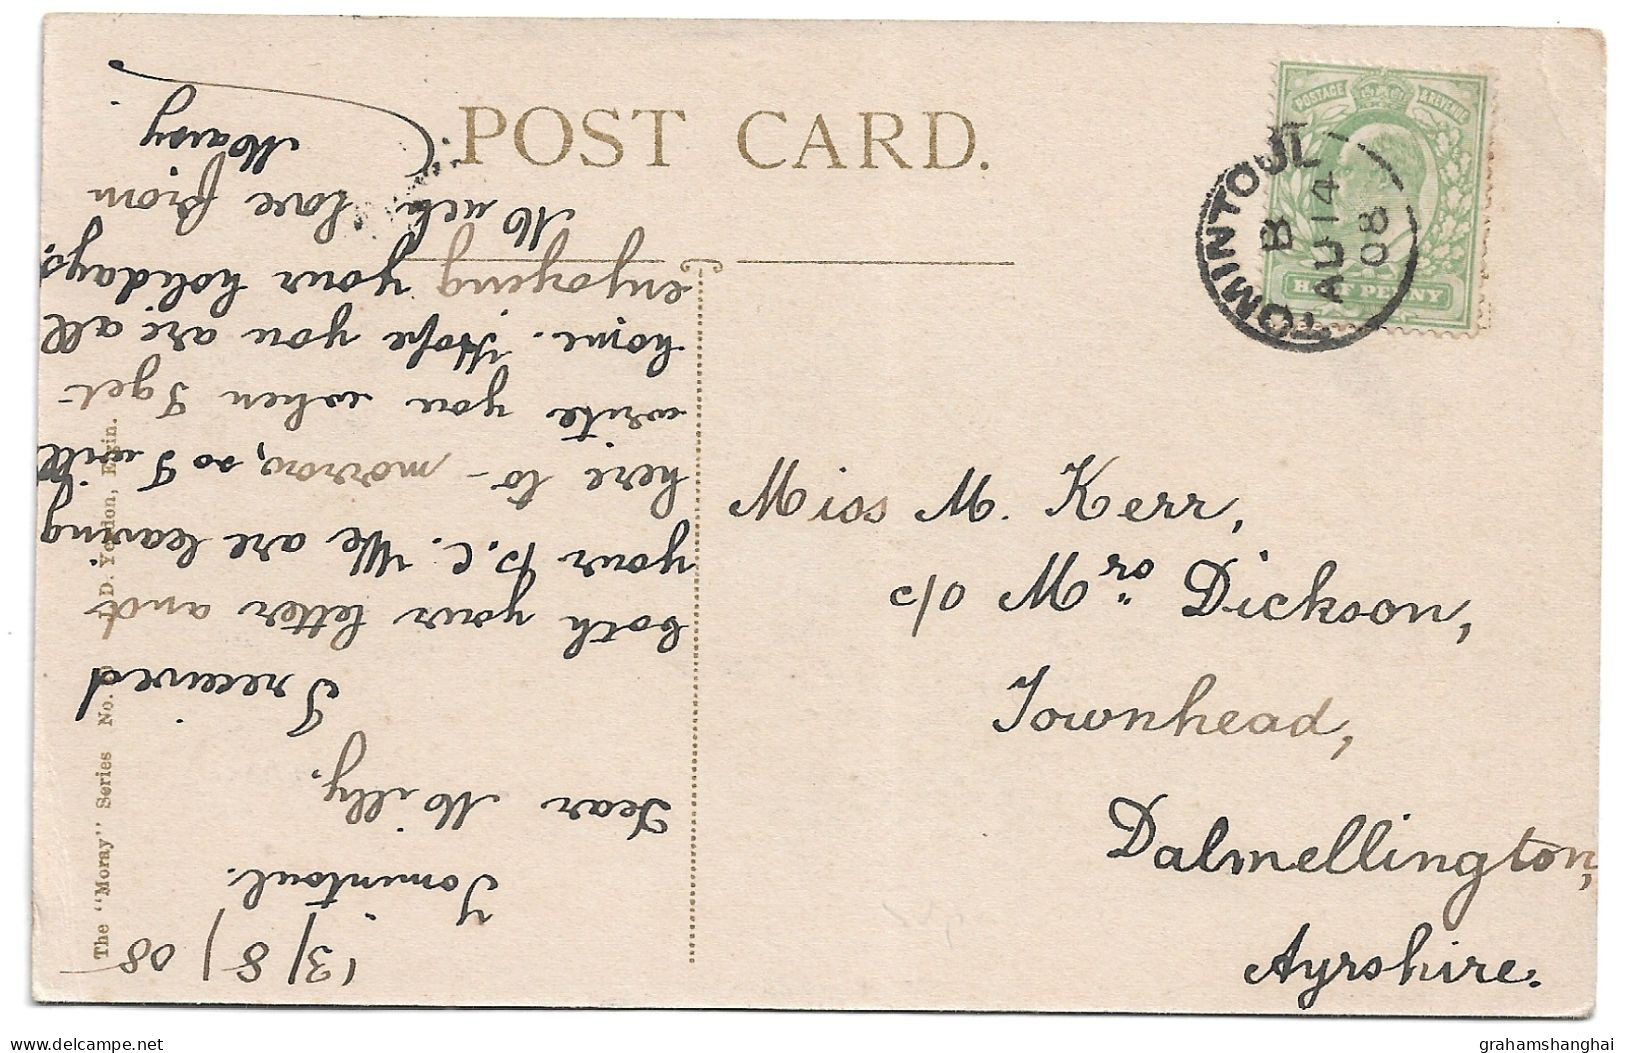 POST CARD.
POSTAGE & REVENUE
HALF PENNY
TOMINTOUL
B
AU 14
08
Miss M. Kerr,
c/o Mr or Dickson,
Townhead,
Dalmellington,
Ayrshire.
13/8/08
Tomintoul.
Dear Milly.
I received
both your letter and
your P.C. We are leaving
here to-morrow, so I will
write you when I get
home. Hope you are all
enjoying your holidays.
Much love from
The "Moray" Series No. D. Yeadon, Elgin.
delcampe.net
grahamshanghai